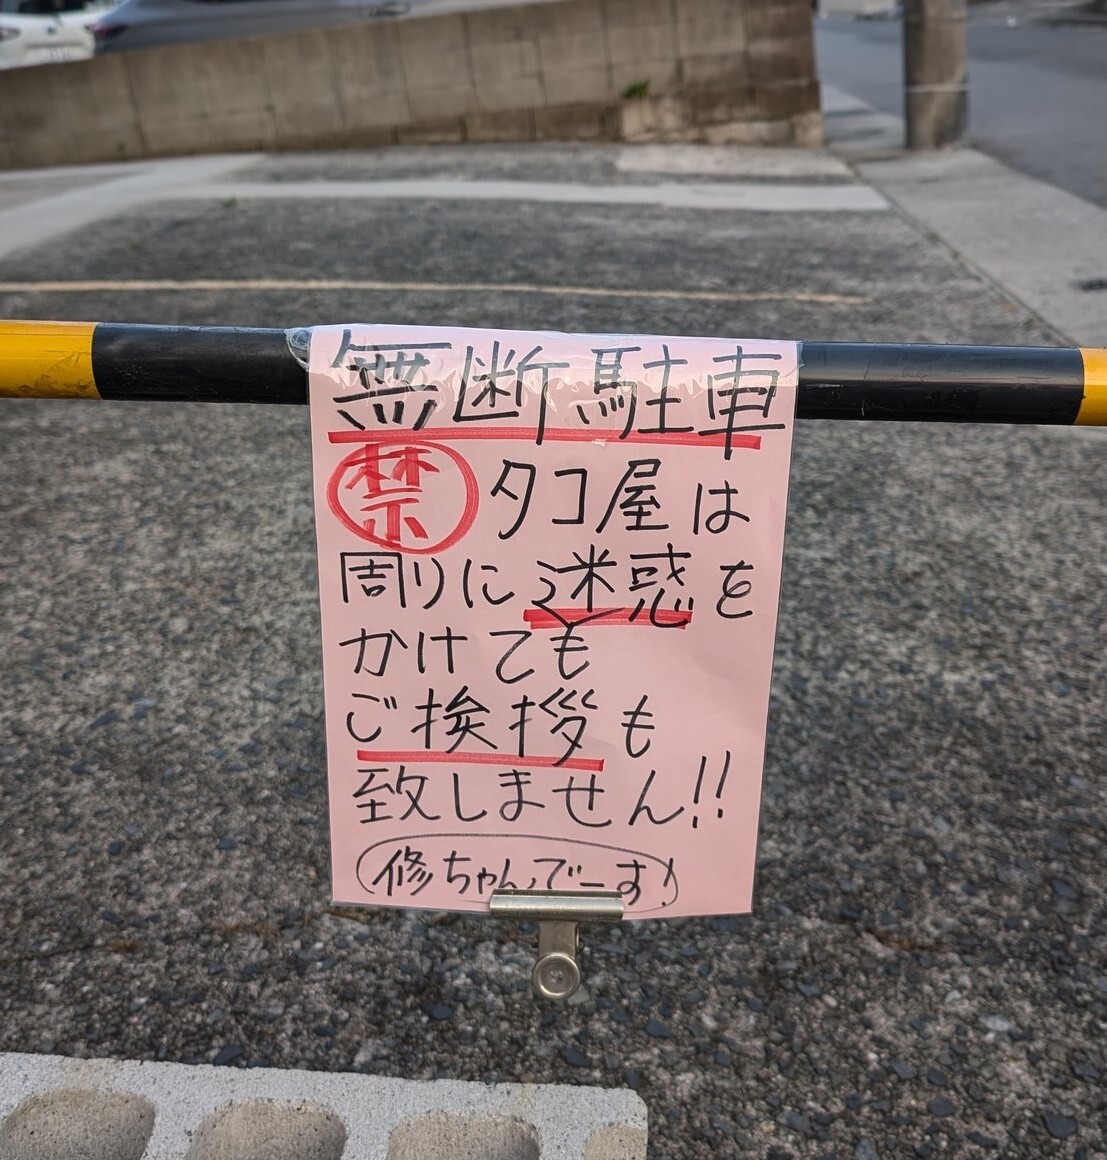 無断駐車
禁 タコ屋は
周りに迷惑を
かけても
ご挨拶も
致しません!!
修ちゃんでーす!